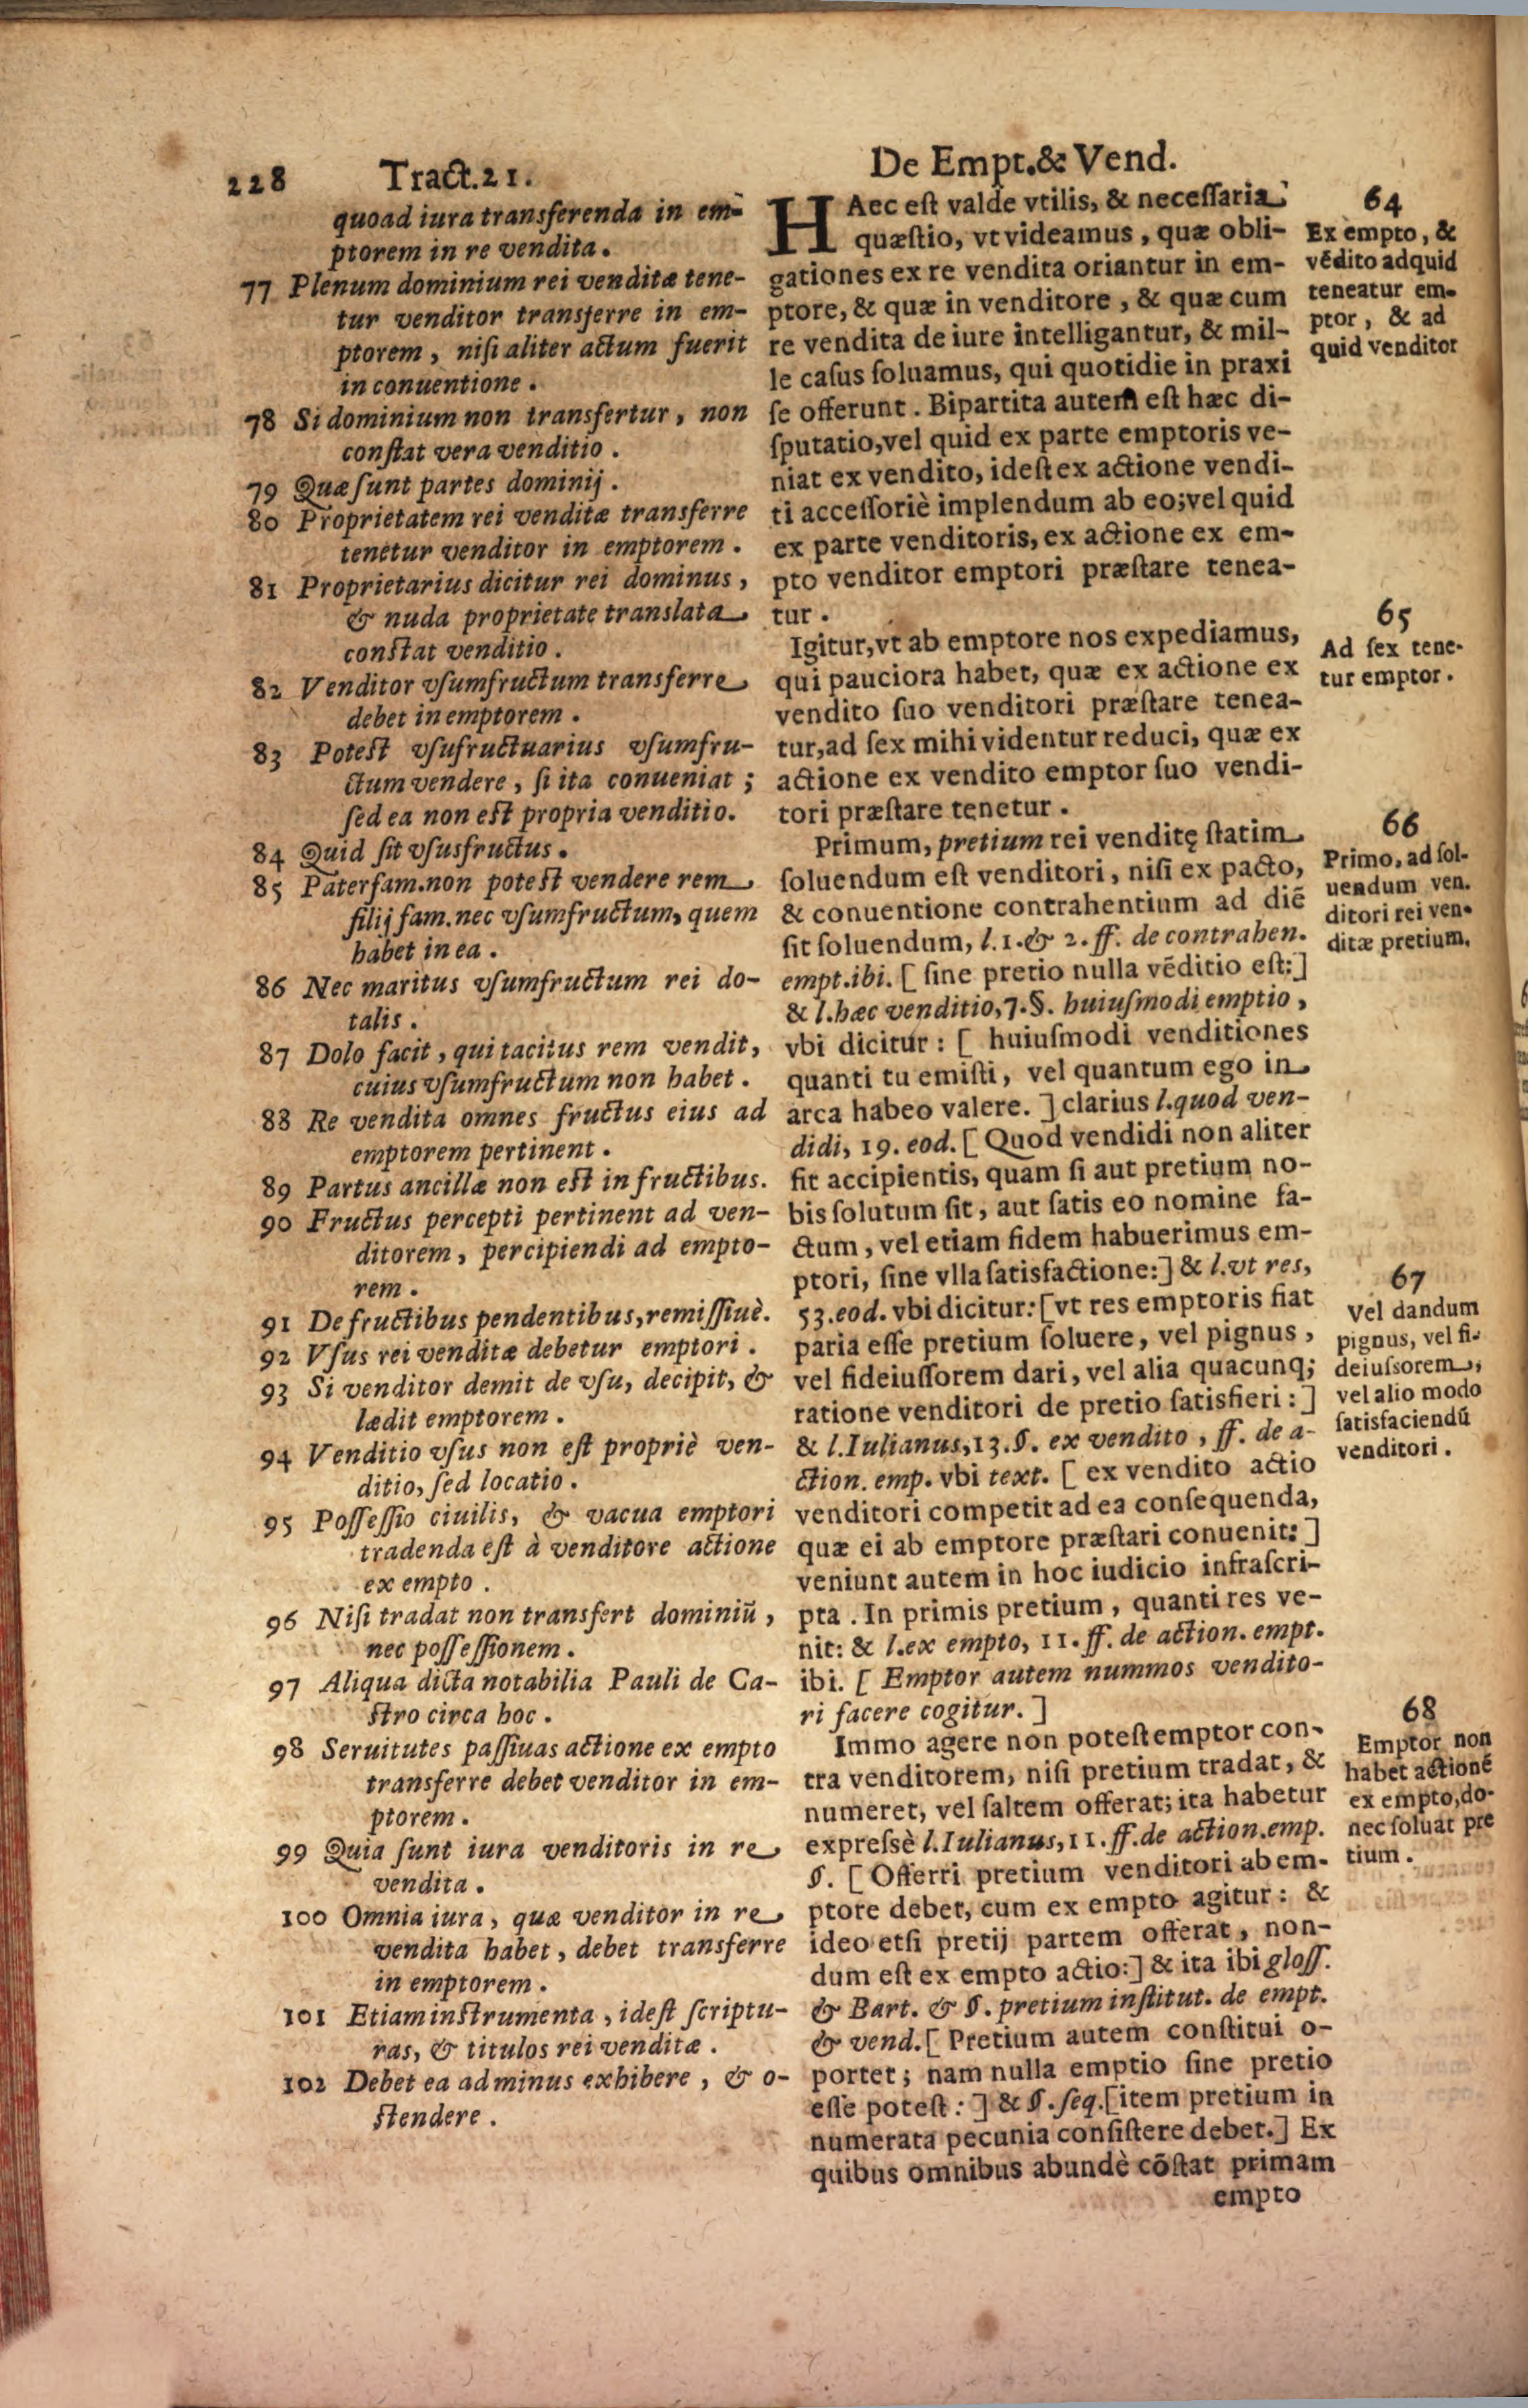 228 Tract.21. De Empt.& Vend.
quoad iura transferenda in em-
ptorem in re vendita.
77 Plenum dominium rei venditæ tene-
tur venditor transferre in em-
ptorem, nisi aliter actum fuerit
in conuentione.
78 Si dominium non transfertur, non
constat vera venditio.
79 Quæ sunt partes dominij.
80 Proprietatem rei venditæ transferre
tenetur venditor in emptorem.
81 Proprietarius dicitur rei dominus,
& nuda proprietate translata
constat venditio.
82 Venditor vsumfructum transferre
debet in emptorem.
83 Potest vsufructuarius vsumfru-
ctum vendere, si ita conueniat;
sed ea non est propria venditio.
84 Quid sit vsusfructus.
85 Paterfam.non potest vendere rem
filij fam. nec vsumfructum, quem
habet in ea.
86 Nec maritus vsumfructum rei do-
talis.
87 Dolo facit, qui tacitus rem vendit,
cuius vsumfructum non habet.
88 Re vendita omnes fructus eius ad
emptorem pertinent.
89 Partus ancillæ non est in fructibus.
90 Fructus percepti pertinent ad ven-
ditorem, percipiendi ad empto-
rem.
91 De fructibus pendentibus, remissiuè.
92 Vsus rei venditæ debetur emptori.
93 Si venditor demit de vsu, decipit, &
lædit emptorem.
94 Venditio vsus non est propriè ven-
ditio, sed locatio.
95 Possessio ciuilis, & vacua emptori
tradenda est à venditore actione
ex empto.
96 Nisi tradat non transfert dominiū,
nec possessionem.
97 Aliqua dicta notabilia Pauli de Ca-
stro circa hoc.
98 Seruitutes passiuas actione ex empto
transferre debet venditor in em-
ptorem.
99 Quia sunt iura venditoris in re
vendita.
100 Omnia iura, quæ venditor in re
vendita habet, debet transferre
in emptorem.
101 Etiam instrumenta, idest scriptu-
ras, & titulos rei venditæ.
102 Debet ea ad minus exhibere, & o-
stendere.
HAec est valde vtilis, & necessaria
quæstio, vt videamus, quæ obli-
gationes ex re vendita oriantur in em-
ptore, & quæ in venditore, & quæ cum
re vendita de iure intelligantur, & mil-
le casus soluamus, qui quotidie in praxi
se offerunt. Bipartita autem est hæc di-
sputatio, vel quid ex parte emptoris ve-
niat ex vendito, idest ex actione vendi-
ti accessoriè implendum ab eo; vel quid
ex parte venditoris, ex actione ex em-
pto venditor emptori præstare tenea-
tur.
Igitur, vt ab emptore nos expediamus,
qui pauciora habet, quæ ex actione ex
vendito suo venditori præstare tenea-
tur, ad sex mihi videntur reduci, quæ ex
actione ex vendito emptor suo vendi-
tori præstare tenetur.
Primum, pretium rei venditę statim
soluendum est venditori, nisi ex pacto,
& conuentione contrahentium ad diē
sit soluendum, l.1.& 2.ff. de contrahen.
empt.ibi. [ sine pretio nulla vēditio est:]
& l.hæc venditio,7.§. huiusmodi emptio,
vbi dicitur: [ huiusmodi venditiones
quanti tu emisti, vel quantum ego in
arca habeo valere. ] clarius l.quod ven-
didi, 19. eod. [ Quod vendidi non aliter
fit accipientis, quam si aut pretium no-
bis solutum sit, aut satis eo nomine fa-
ctum, vel etiam fidem habuerimus em-
ptori, sine vlla satisfactione:] & l.vt res,
53.eod. vbi dicitur: [vt res emptoris fiat
paria esse pretium soluere, vel pignus,
vel fideiussorem dari, vel alia quacunq;
ratione venditori de pretio satisfieri:]
& l.Iulianus,13.§. ex vendito, ff. de a-
ction. emp. vbi text. [ ex vendito actio
venditori competit ad ea consequenda,
quæ ei ab emptore præstari conuenit: ]
veniunt autem in hoc iudicio infrascri-
pta. In primis pretium, quanti res ve-
nit: & l.ex empto, 11.ff. de action. empt.
ibi. [ Emptor autem nummos vendito-
ri facere cogitur. ]
Immo agere non potest emptor con-
tra venditorem, nisi pretium tradat, &
numeret, vel saltem offerat; ita habetur
expressè l.Iulianus,11.ff.de action.emp.
§. [ Offerri pretium venditori ab em-
ptore debet, cum ex empto agitur: &
ideo etsi pretij partem offerat, non-
dum est ex empto actio:] & ita ibi gloss.
& Bart. & §. pretium institut. de empt.
& vend. [ Pretium autem constitui o-
portet; nam nulla emptio sine pretio
esse potest: ] & §.seq.[item pretium in
numerata pecunia consistere debet.] Ex
quibus omnibus abundè cōstat primam
empto
64
Ex empto, &
vēdito adquid
teneatur em-
ptor, & ad
quid venditor
65
Ad sex tene-
tur emptor.
66
Primo, ad sol-
uendum ven.
ditori rei ven-
ditæ pretium.
67
Vel dandum
pignus, vel fi-
deiussorem,
vel alio modo
satisfaciendū
venditori.
68
Emptor non
habet actionē
ex empto, do-
nec soluat pre
tium.